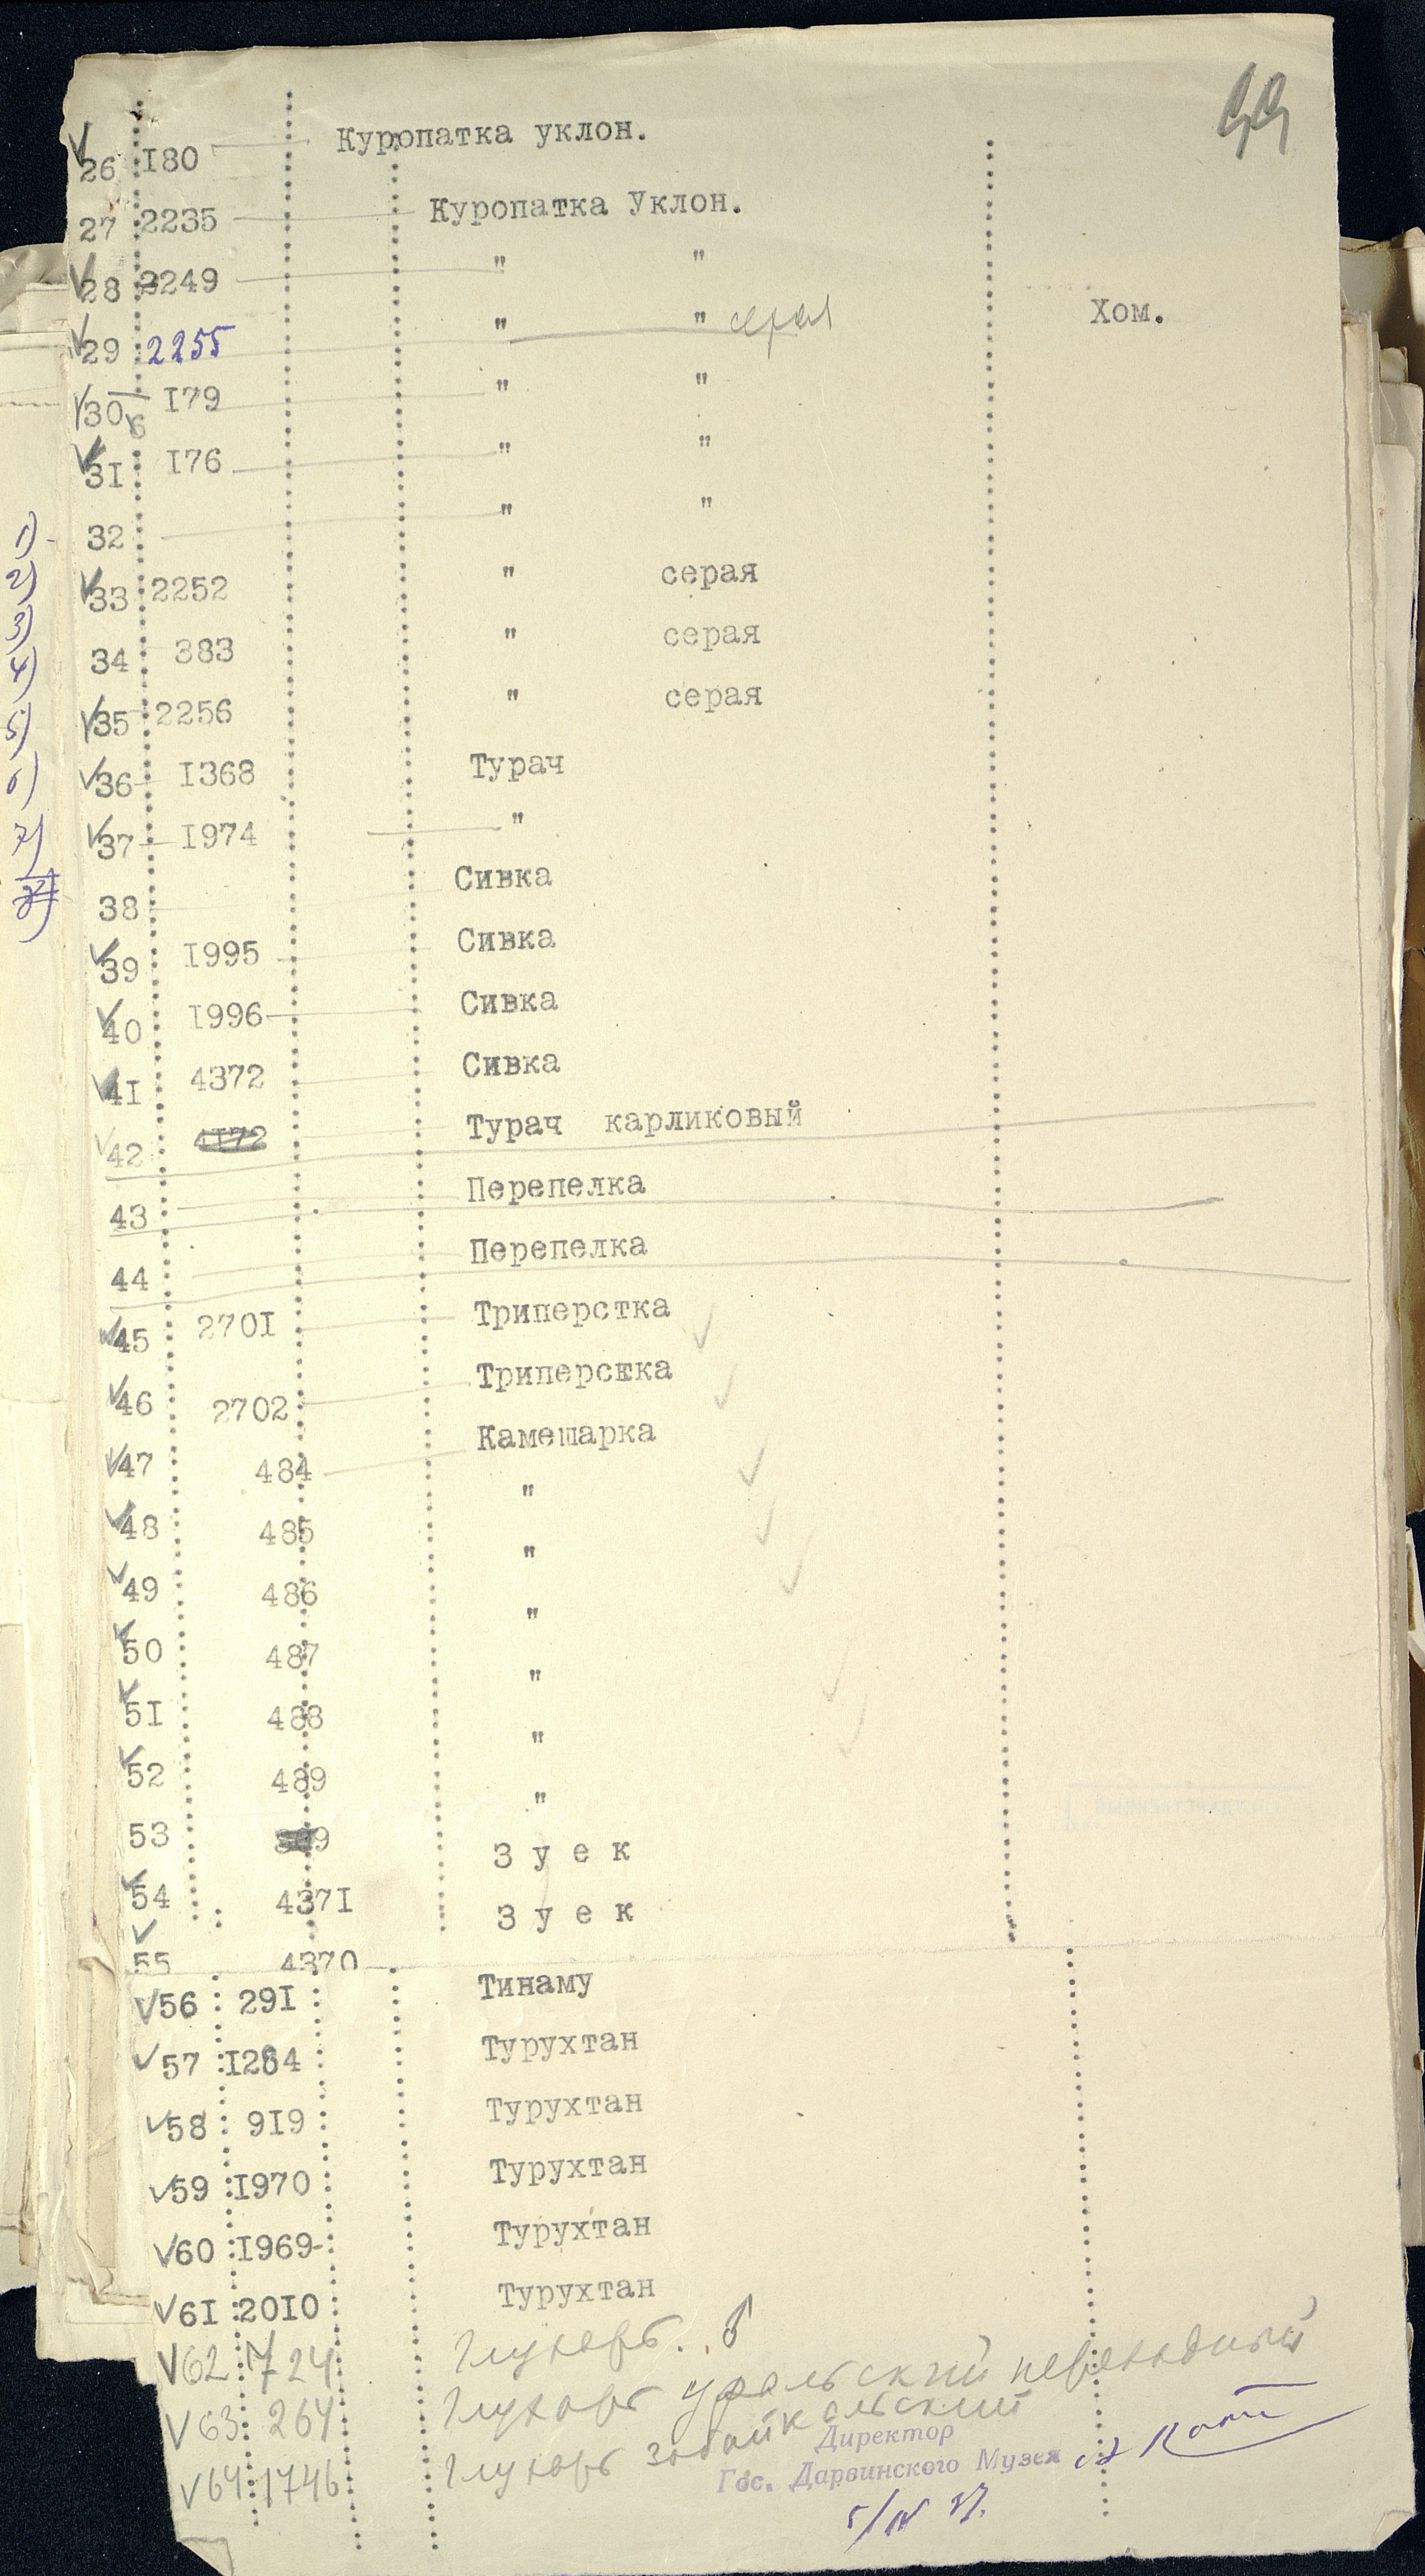 99
✓26 180 Куропатка уклон.
27 2235 Куропатка Уклон.
✓28 2249 " "
✓29 2255 " " серая Хом.
✓30 179 " "
✓31 176 " "
32 " "
✓33 2252 " серая
34 383 " серая
✓35 2256 " серая
✓36 1368 Турач
✓37 1974 "
38 Сивка
✓39 1995 Сивка
✓40 1996 Сивка
✓41 4372 Сивка
✓42 4172 Турач карликовый
43 Перепелка
44 Перепелка
✓45 2701 Триперстка
✓46 2702 Триперстка
✓47 484 Камешарка
✓48 485 "
✓49 486 "
✓50 487 "
✓51 488 "
✓52 489 "
53 "
✓54 4371 З у е к
✓55 4370 З у е к
✓56 291 Тинаму
✓57 1264 Турухтан
✓58 919 Турухтан
✓59 1970 Турухтан
✓60 1969 Турухтан
✓61 2010 Турухтан
✓62 724 Глухарь ♂
✓63 264 Глухарь уральский переходный
✓64 1746 Глухарь забайкальский
Директор
Гос. Дарвинского Музея А Котс
5/IV 37.
1)
2)
3)
4)
5)
6)
7)
8)